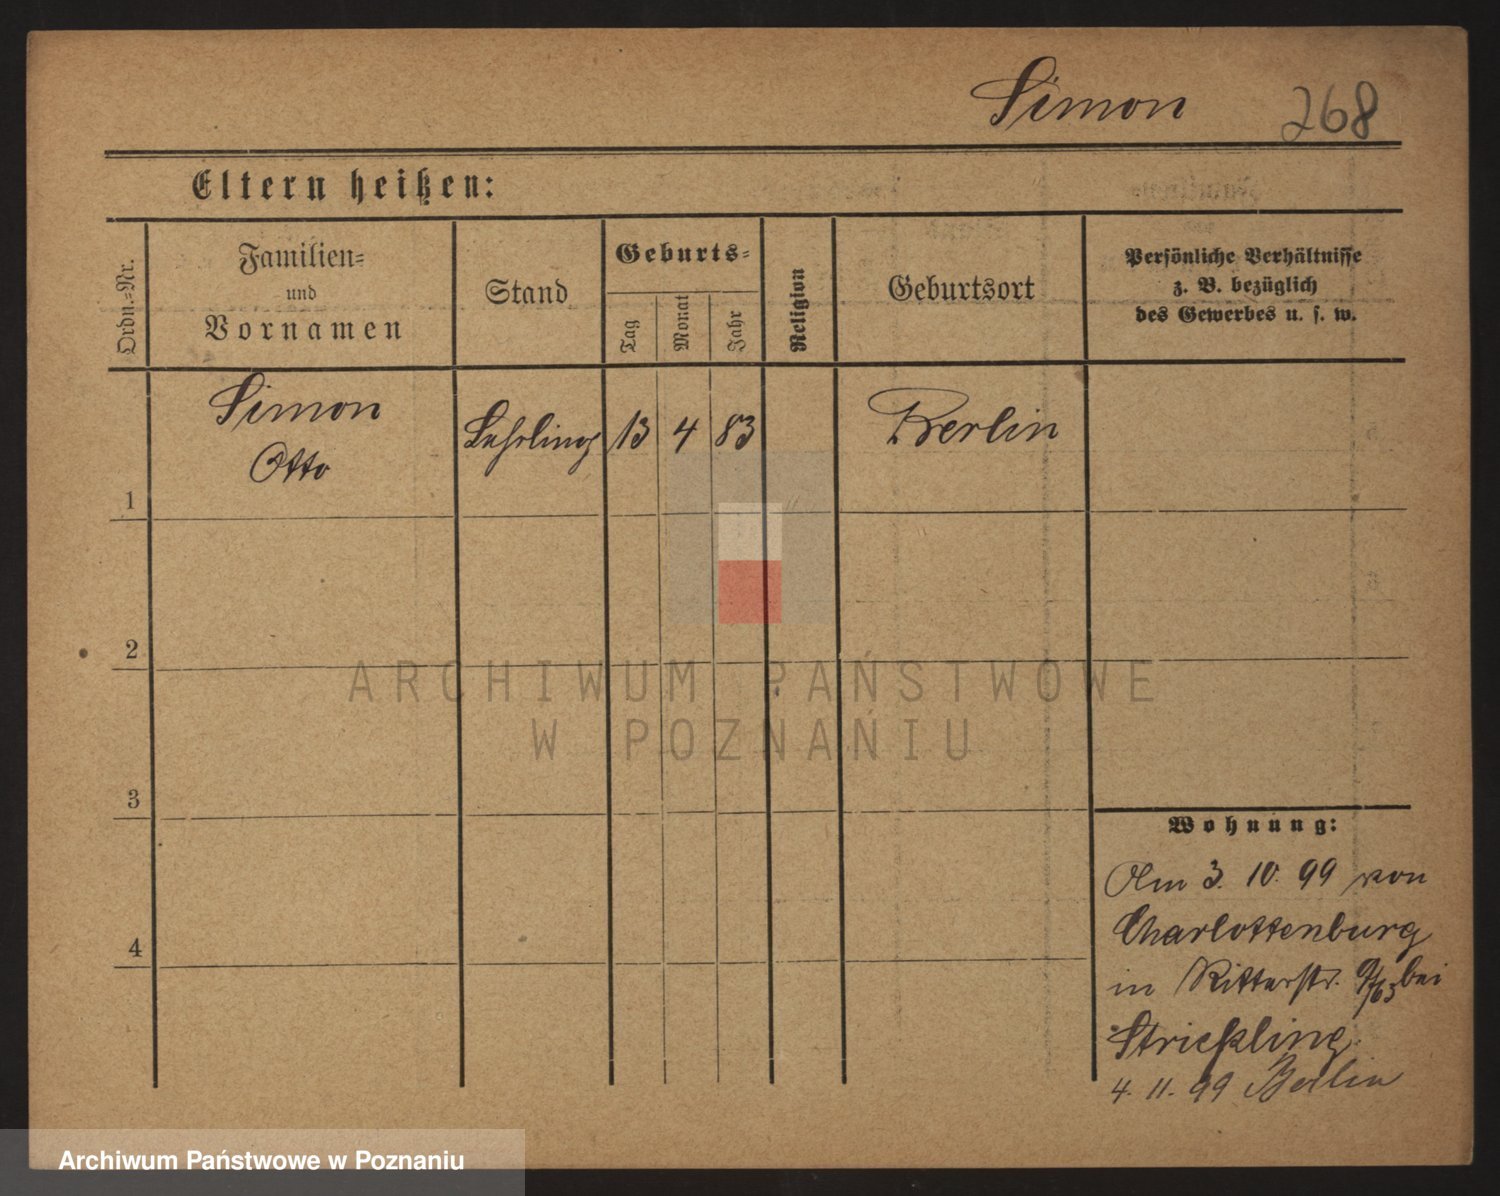 Simon 268
Eltern heißen:
Ordn.-Nr.
Familien-
und
Vornamen
Stand
Geburts-
Tag
Monat
Jahr
Religion
Geburtsort
Persönliche Verhältnisse
z. B. bezüglich
des Gewerbes u. s. w.
Simon
Otto
Lehrling 13 4 83 Berlin
1
2
ARCHIWUM PAŃSTWOWE
W POZNANIU
3
Wohnung:
Am 3. 10. 99 von
Charlottenburg
in Ritterstr. bei
Strickling
4. 11. 99 Berlin
4
Archiwum Państwowe w Poznaniu